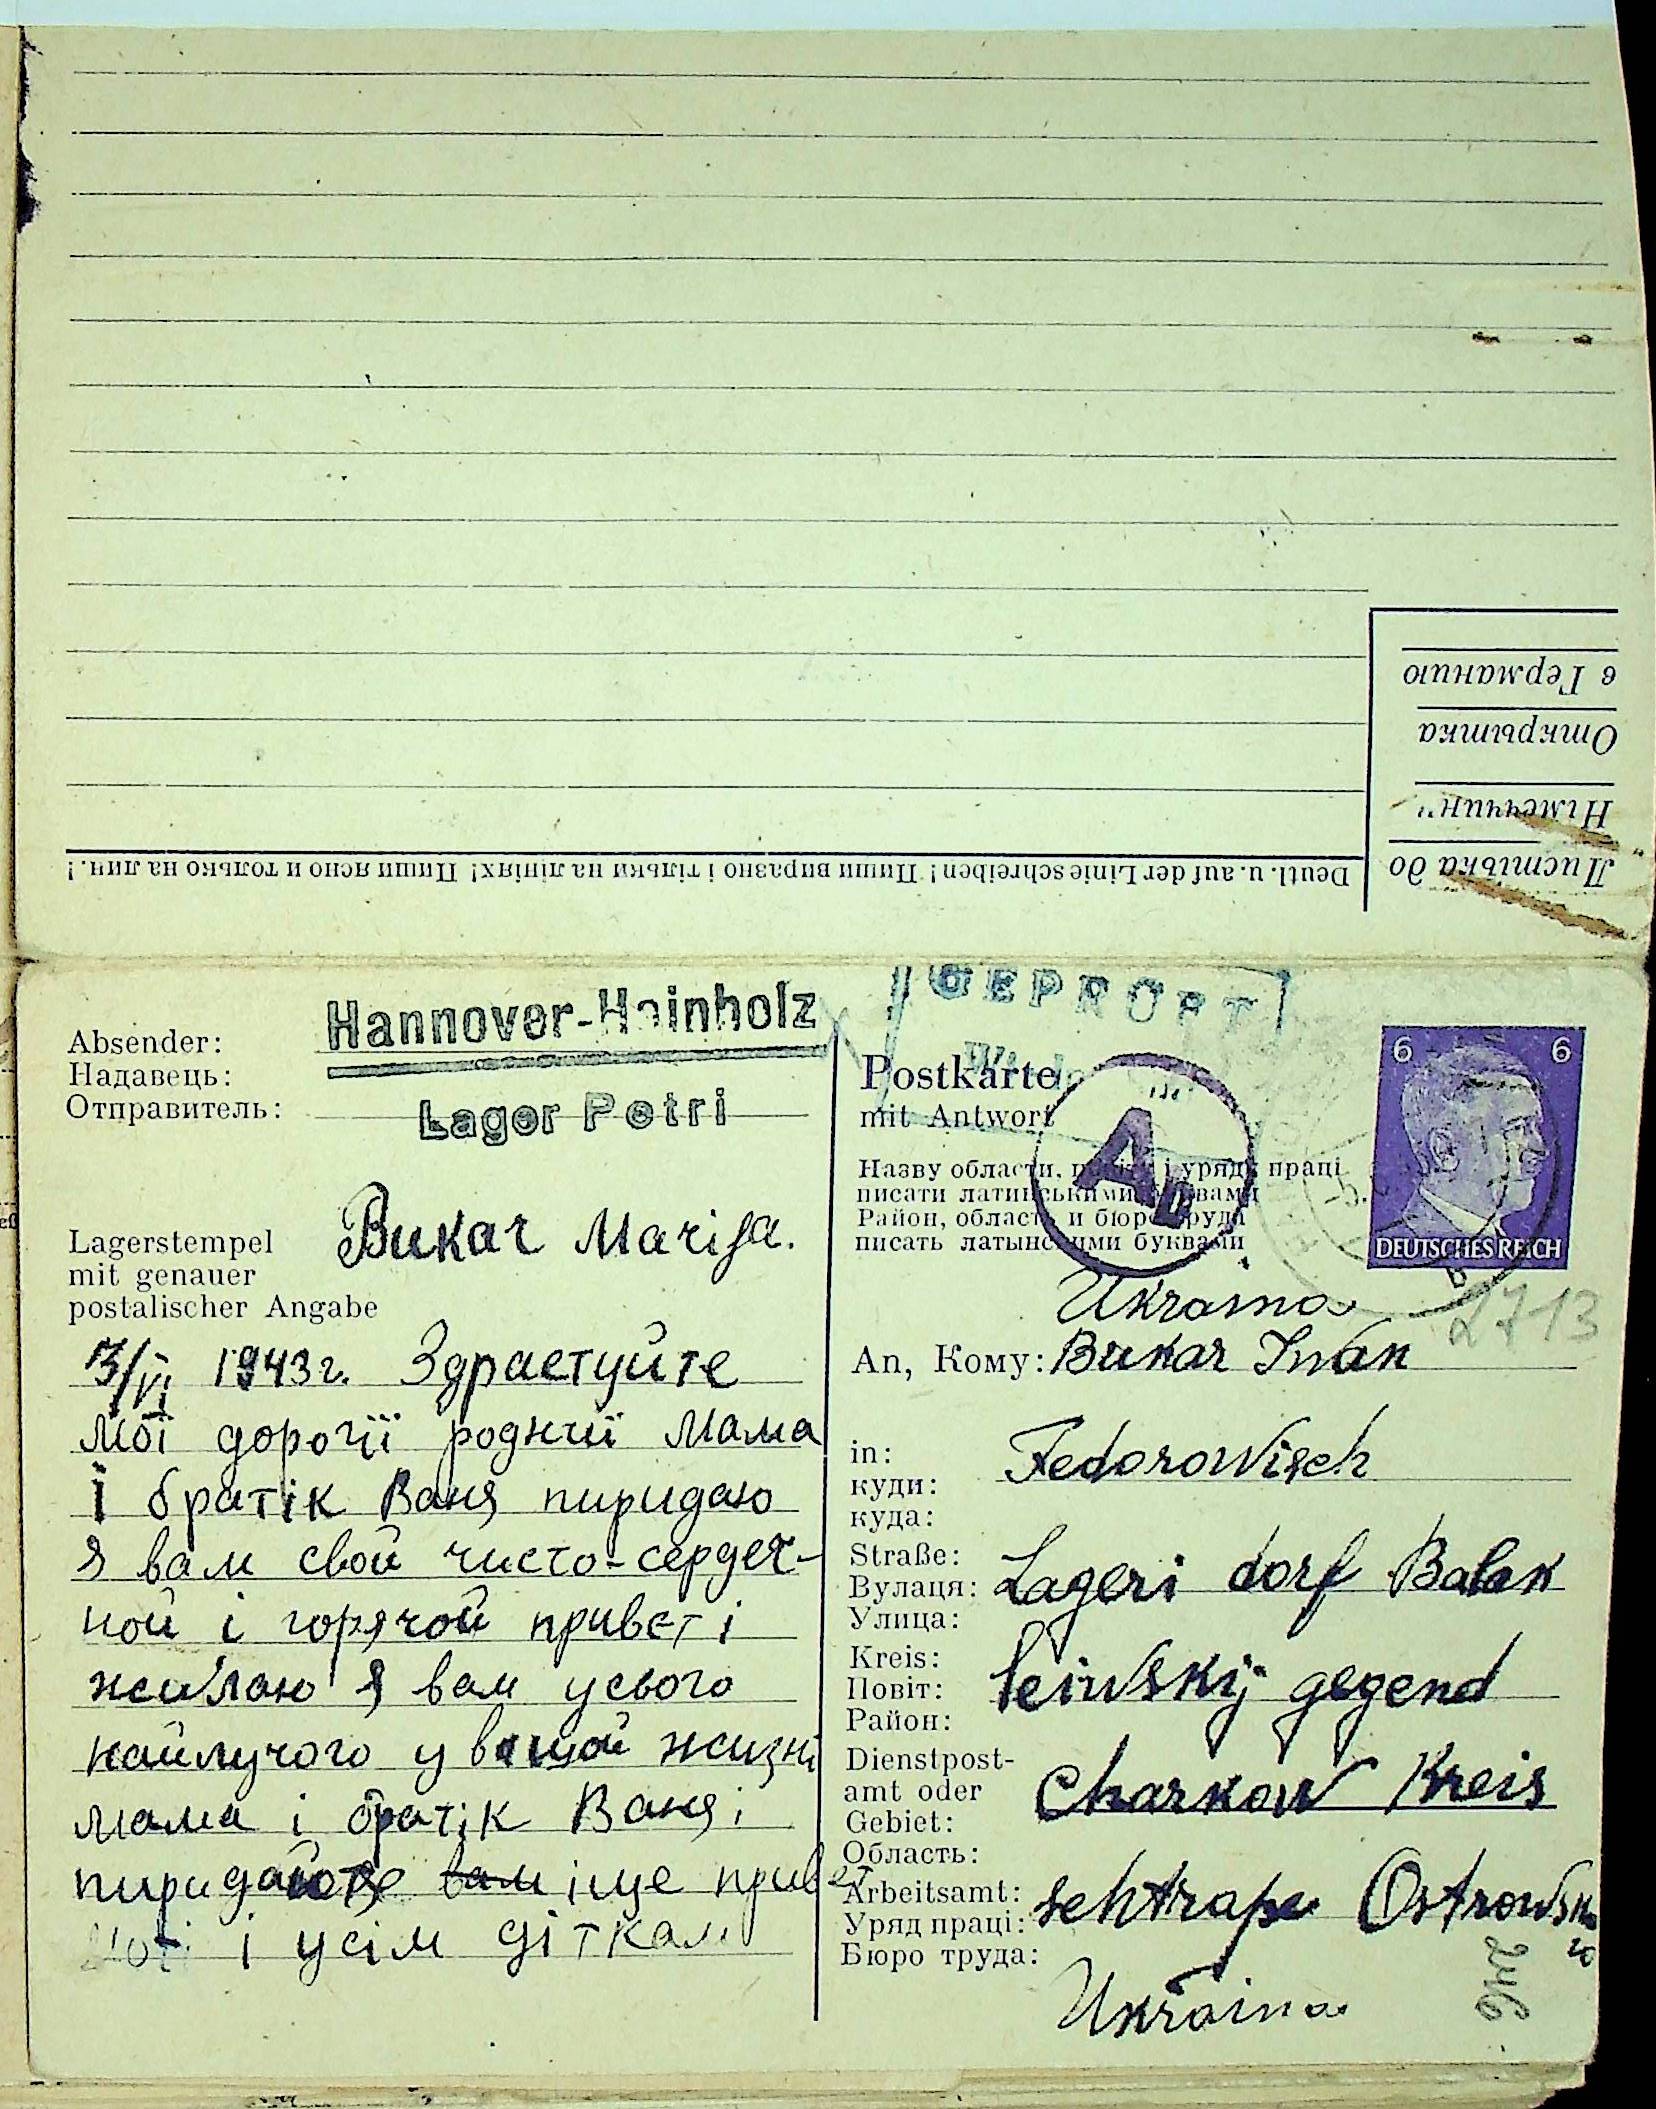 Листівка до
Німеччини
Открытка
в Германию
Deutl. u. auf der Linie schreiben! Пиши виразно і тільки на лініях! Пиши ясно и только на лин.!
Hannover-Hainholz
Lager Petri
Absender:
Надавець:
Отправитель:
Bukar Marija.
Lagerstempel
mit genauer
postalischer Angabe
3/VI 1943г. Здраетуйте
мої дорогії роднії мама
ї братік Ваня пиридаю
я вам свой чисто-сердеч-
ной і горячой привет і
жилаю я вам усього
найлучого у вашой жизні
мама і братік Ваня і
пиридайоте вам іще привет
і усім діткам
GEPRÜFT
Postkarte
mit Antwort
Ab
6 6
DEUTSCHES REICH
b
Назву области, повіту і уряду праці
писати латинськими буквами
Район, область и бюро труда
писать латынскими буквами
Ukraina
2713
An, Кому: Bukar Iwan
in:
куди:
куда:
Fedorowisch
Straße:
Вулаця:
Улица:
Lageri dorf Balak
Kreis:
Повіт:
Район:
leiwskij gegend
Dienstpost-
amt oder
Gebiet:
Область:
Charkow Kreis
Arbeitsamt:
Уряд праці:
Бюро труда:
schtrape Ostrowsko
го
Ukraina
246